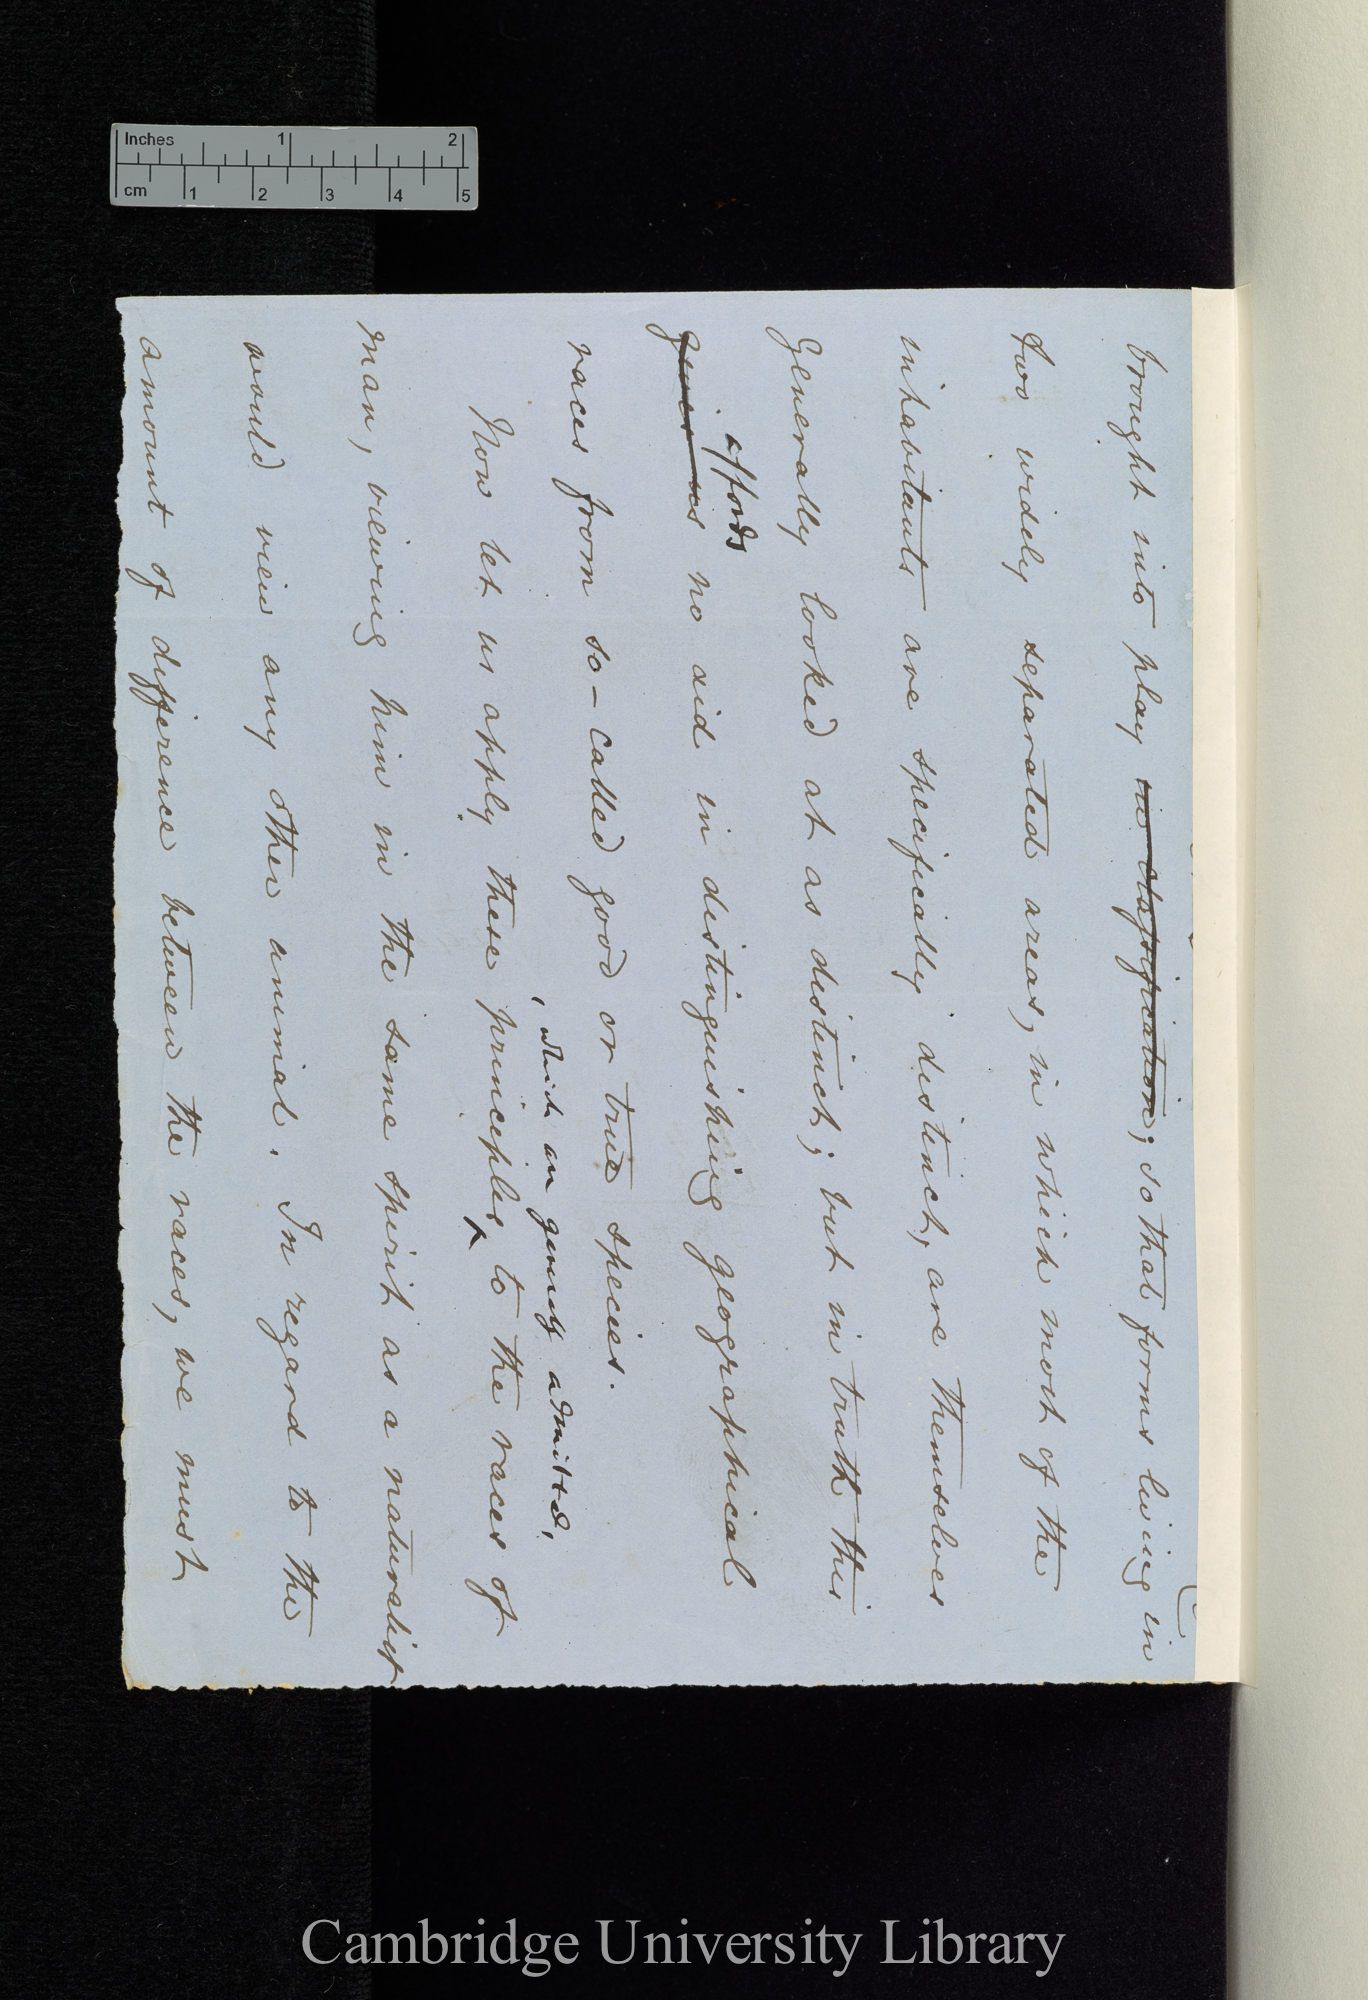 Inches 1 2
cm 1 2 3 4 5
brought into play in classification; so that forms living in
two widely separated areas, in which most of the
inhabitants are specifically distinct, are themselves
generally looked at as distinct; but in truth this
affords
gives us no aid in distinguishing geographical
races from so-called good or true species.
, which are generally admitted,
Now let us apply these principles to the races of
man, viewing him in the same spirit as a naturalist
would view any other animal. In regard to the
amount of difference between the races, we must
Cambridge University Library